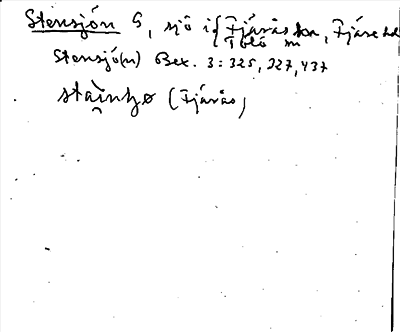 Stensjön S, sjö i { Fjärås sn, Fjäre hd
Tölö sn
Stensjö(n) Bex. 3:325, 327, 437
(Fjärås)